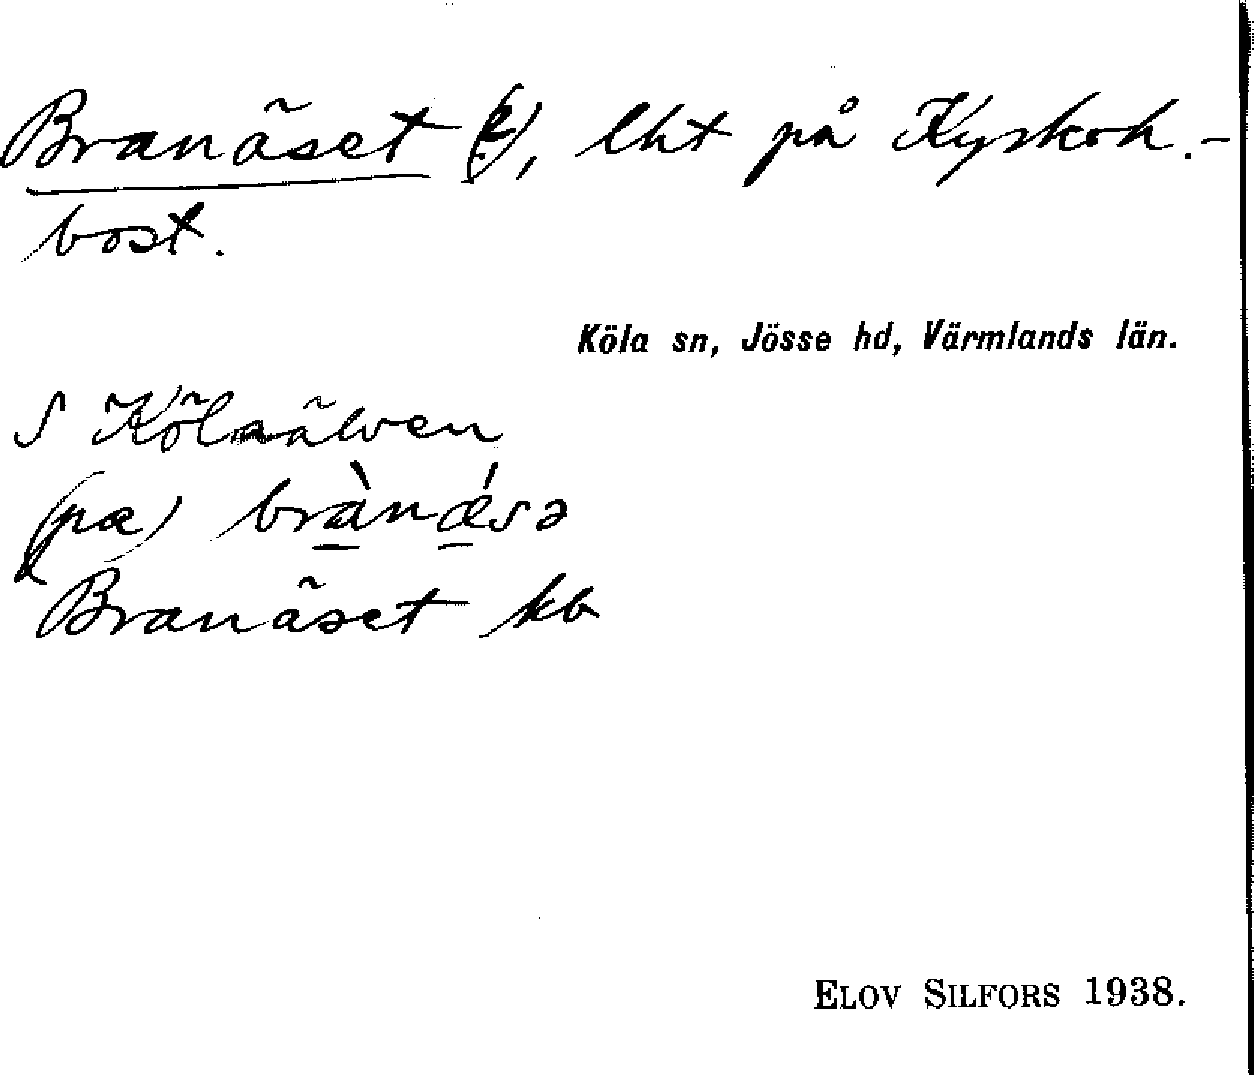 Branäset (?), lht på Kyrkoh.-
bost.
Köla sn, Jösse hd, Värmlands län.
S Kölaälven
(pæ) brànǽsə
Branäset kb
ELOV SILFORS 1938.